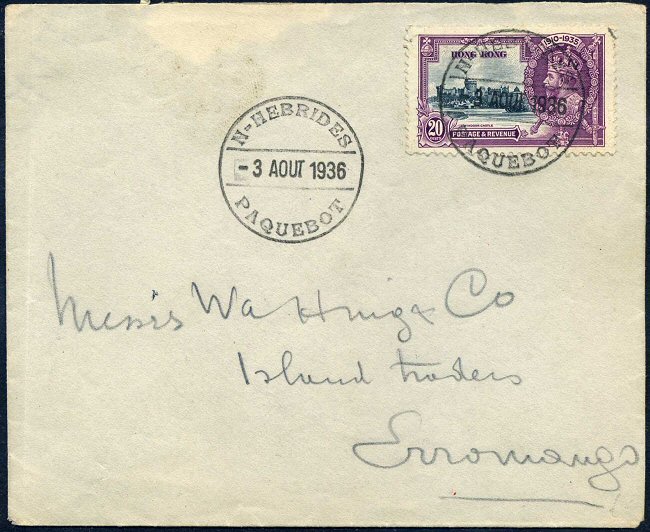 N-HEBRIDES
-3 AOUT 1936
PAQUEBOT
HONG KONG
1910-1935
WINDSOR CASTLE
20
CENTS
POSTAGE & REVENUE
3 AOUT 1936
PAQUEBOT
Messrs Wa Hing & Co
Island traders
Erromango